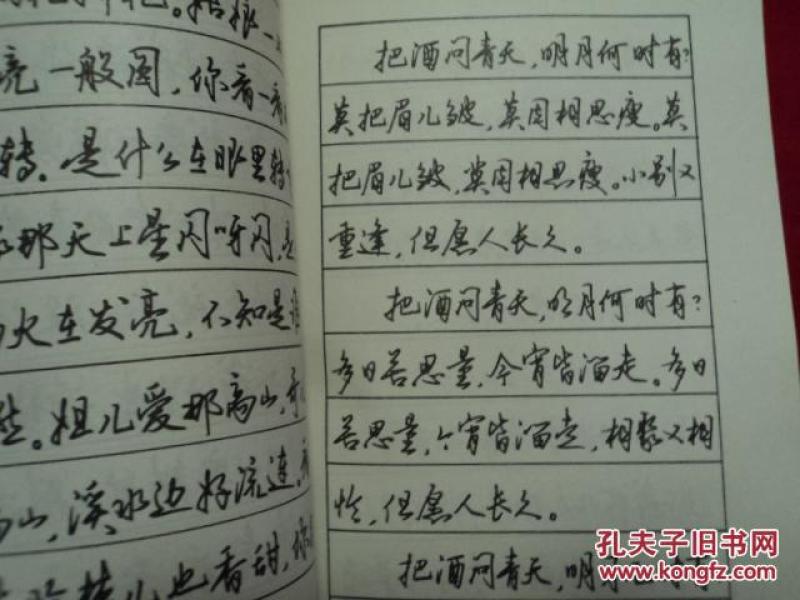 姑娘一
亮一般圆，你看一看
转。是什么在眼里转
那天上星闪呀闪，
火在发亮，不知是谁
。姐儿爱那高山，
山，溪水边好流连。
花儿也香甜，你
把酒问青天，明月何时有？
莫把眉儿皱，莫因相思瘦。莫
把眉儿皱，莫因相思瘦。小别又
重逢，但愿人长久。
把酒问青天，明月何时有？
多日苦思量，今宵皆溜走。多日
苦思量，今宵皆溜走，相聚又相
怜，但愿人长久。
把酒问青天，明月何时有
孔夫子旧书网
www.kongfz.com